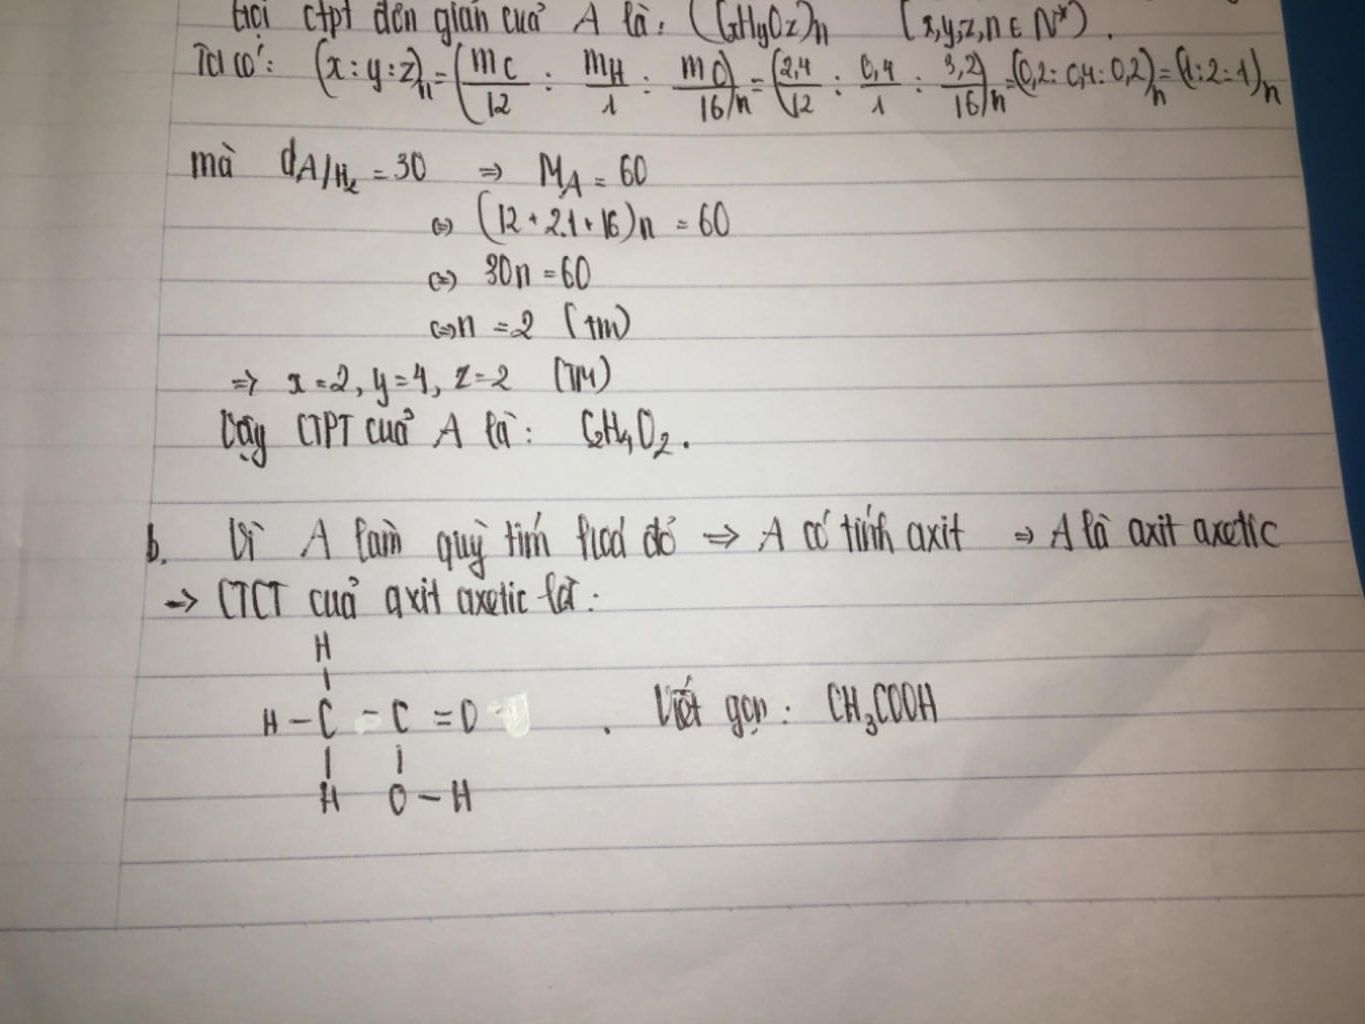 Gọi ctpt đơn giản cuả A là: (CxHyOz)n (x,y,z,n ∈ N*).
Ta có: (x:y:z)n = (mC/12 : mH/1 : mO/16)n = (2,4/12 : 0,4/1 : 3,2/16)n = (0,2:0,4:0,2)n = (1:2:1)n
mà dA/H2 = 30 ⇒ MA = 60
⇔ (12+2.1+16)n = 60
⇔ 30n = 60
⇔ n = 2 (tm)
⇒ x=2, y=4, z=2 (TM)
Vậy CTPT cuả A là: C2H4O2.
b. Vì A làm quỳ tím hoá đỏ ⇒ A có tính axit ⇒ A là axit axetic
⇒ CTCT cuả axit axetic là:
H
H – C – C = O . Viết gọn: CH3COOH
H O – H